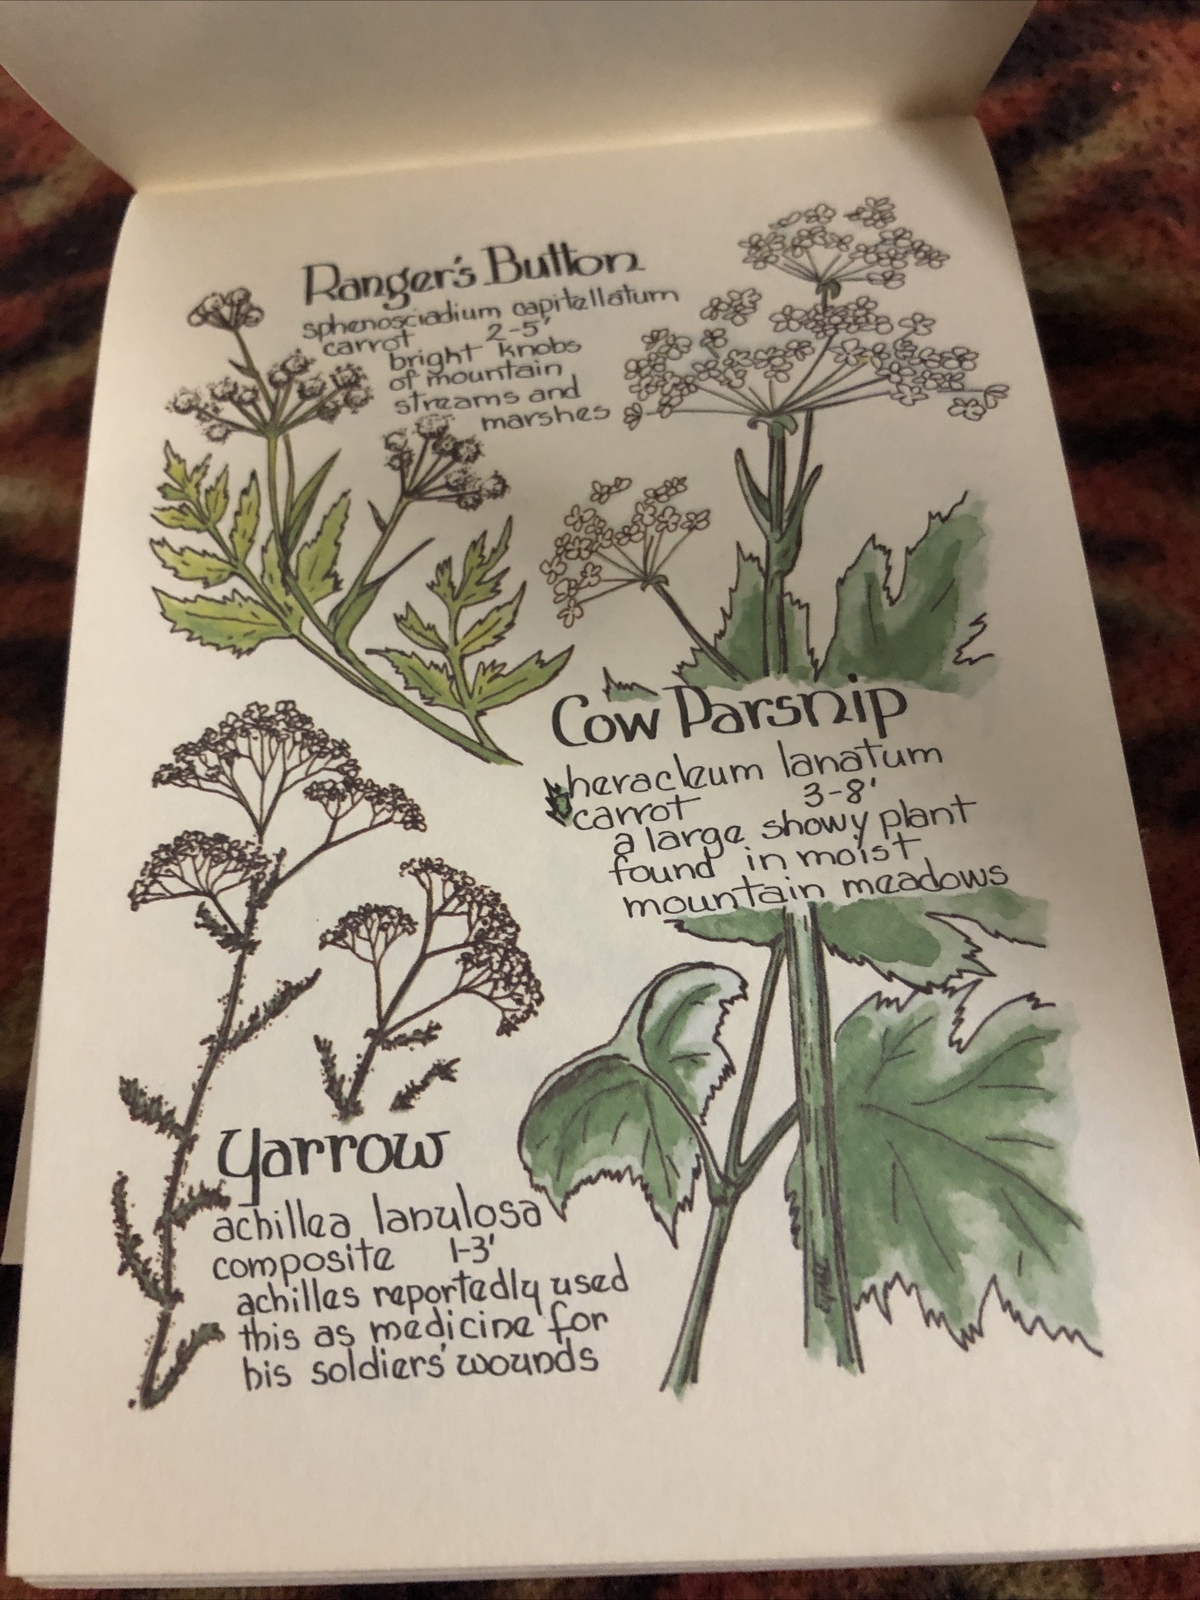 Ranger's Button
sphenosciadium capitellatum
carrot 2-5'
bright knobs
of mountain
streams and
marshes
Cow Parsnip
heracleum lanatum
carrot 3-8'
a large showy plant
found in moist
mountain meadows
Yarrow
achillea lanulosa
composite 1-3'
achilles reportedly used
this as medicine for
his soldiers' wounds